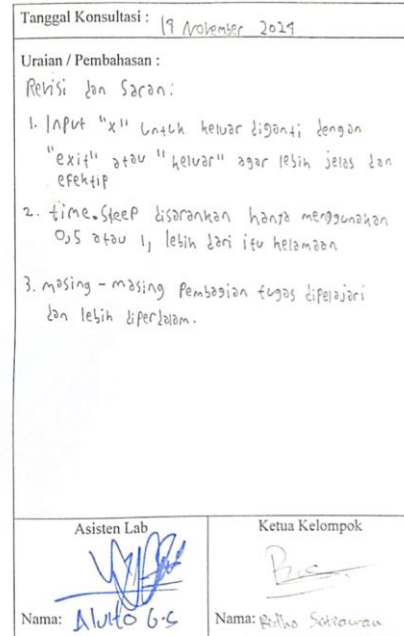 Tanggal Konsultasi : 19 November 2024
Uraian / Pembahasan :
Revisi dan Saran:
1. Input "x" untuk keluar diganti dengan
"exit" atau "keluar" agar lebih jelas dan
efektip
2. time.sleep disarankan hanya menggunakan
0,5 atau 1, lebih dari itu kelamaan
3. masing - masing Pembagian tugas dipelajari
dan lebih diperdalam.
Asisten Lab
Ketua Kelompok
Nama: G.S
Nama: Ridho Setiawan